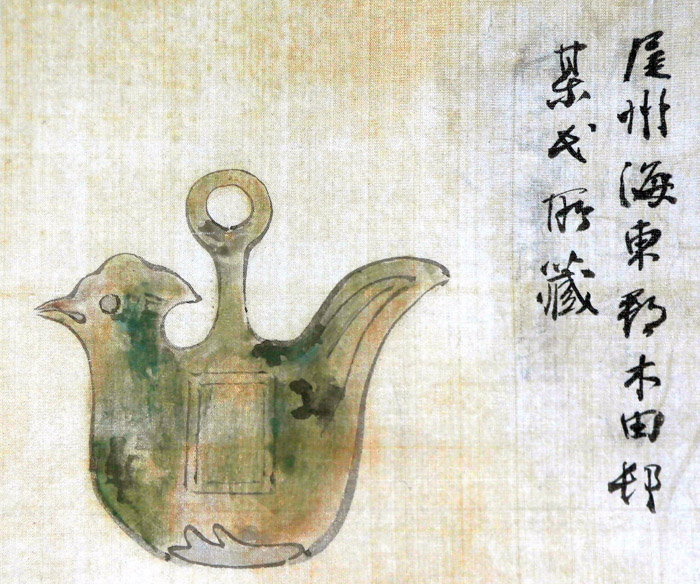 尾州海東郡木田邨
某氏所藏